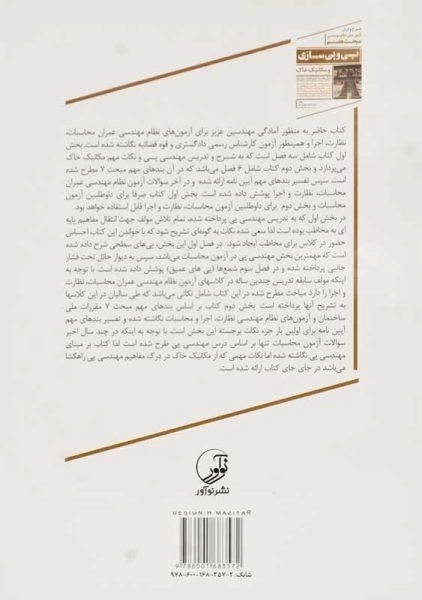 شرح و درس
آزمون‌های نظام مهندسی
مبحث هفتم
پی و پی سازی
و مکانیک خاک
کتاب حاضر به منظور آمادگی مهندسین عزیز برای آزمون‌های نظام مهندسی عمران محاسبات،
نظارت، اجرا و همینطور آزمون کارشناس رسمی دادگستری و قوه قضائیه نگاشته شده است. بخش
اول کتاب شامل سه فصل است که به شرح و تدریس مهندسی پی و نکات مهم مکانیک خاک
می‌پردازد و بخش دوم کتاب شامل ۶ فصل می‌باشد که در آن بندهای مهم مبحث ۷ مطرح شده
است. سپس تفسیر بندهای مهم آیین نامه ارائه شده و در آخر سوالات آزمون نظام مهندسی عمران
محاسبات، نظارت و اجرا پوشش داده شده است. بخش اول کتاب صرفا برای داوطلبین آزمون
محاسبات و بخش دوم برای داوطلبین آزمون محاسبات، نظارت و اجرا قابل استفاده خواهد بود.
در بخش اول که به تدریس مهندسی پی پرداخته شده، تمام تلاش مولف جهت انتقال مفاهیم پایه
ای به مخاطب بوده است لذا سعی شده نکات به گونه‌ای تشریح شود که با خواندن این کتاب احساس
حضور در کلاس برای مخاطب ایجاد شود. در فصل اول این بخش، پی‌های سطحی شرح داده شده
که مهمترین بخش مهندسی پی در آزمون محاسبات می‌باشد، سپس به دیوار حائل تحت فشار
جانبی پرداخته شده و در فصل سوم شمع‌ها (پی های عمیق) پوشش داده شده است. با توجه به
اینکه مولف سابقه تدریس چندین ساله در کلاسهای آزمون نظام مهندسی عمران محاسبات، نظارت
و اجرا را دارد مباحث مطرح شده در این کتاب شامل نکاتی می‌باشد که طی سالیان در این کلاسها
به تشریح آنها پرداخته است. بخش دوم کتاب بر اساس بندهای مهم مبحث ۷ مقررات ملی
ساختمان و آزمون‌های نظام مهندسی نظارت، اجرا و محاسبات نگاشته شده و تفسیر بندهای مهم
آیین نامه برای اولین بار جزء نکات برجسته این بخش است. با توجه به اینکه در چند سال اخیر
سوالات آزمون محاسبات تنها بر اساس درس مهندسی پی طرح شده است لذا کتاب بر مبنای
مهندسی پی نگاشته شده اما نکات مهمی که از مکانیک خاک در درک مفاهیم مهندسی پی راهگشا
می‌باشد در جای جای کتاب ارائه شده است.
نوآور
نشر نوآور
DESIGN: M. MAZIYAR
9786001683572
شابک: ۲-۳۵۷-۱۶۸-۶۰۰-۹۷۸